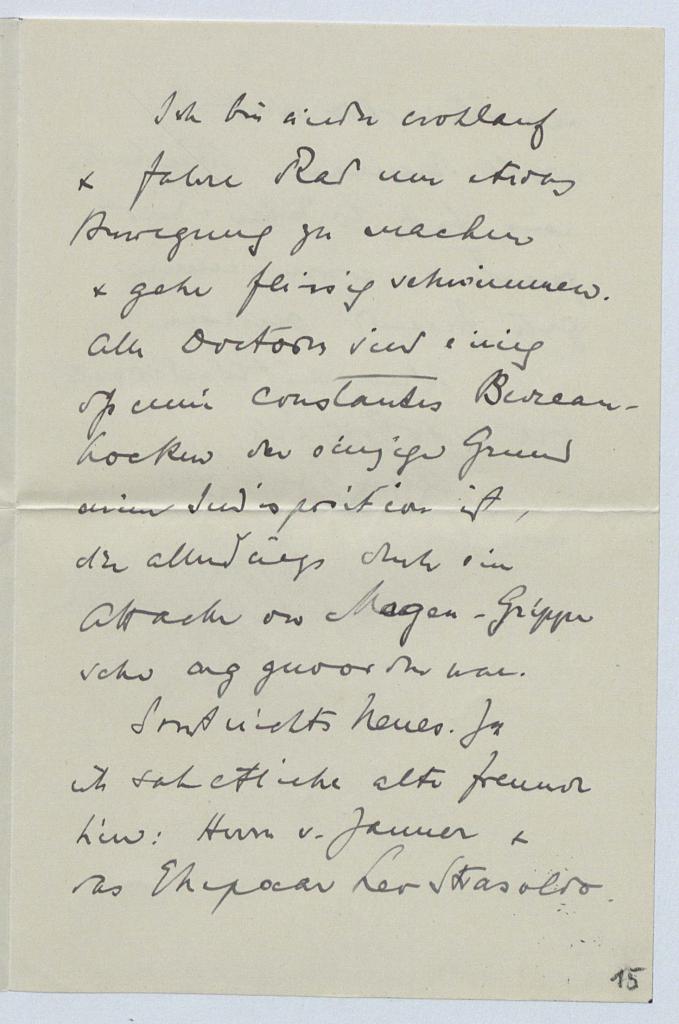 Ich bin wieder wohlauf
+ fahre Rad um etwas
Bewegung zu machen
+ gehe fleissig schwimmen.
Alle Doctoren sind einig
dass mein constantes Bureau-
hocken der einzige Grund
meiner Indisposition ist,
die allerdings durch eine
Attacke von Magen-Grippe
sehr arg geworden war.
Sonst nichts Neues. Ja
ich sah etliche alte Freunde
hier: Herrn v. Janner +
das Ehepaar Leo Strasoldo.
15